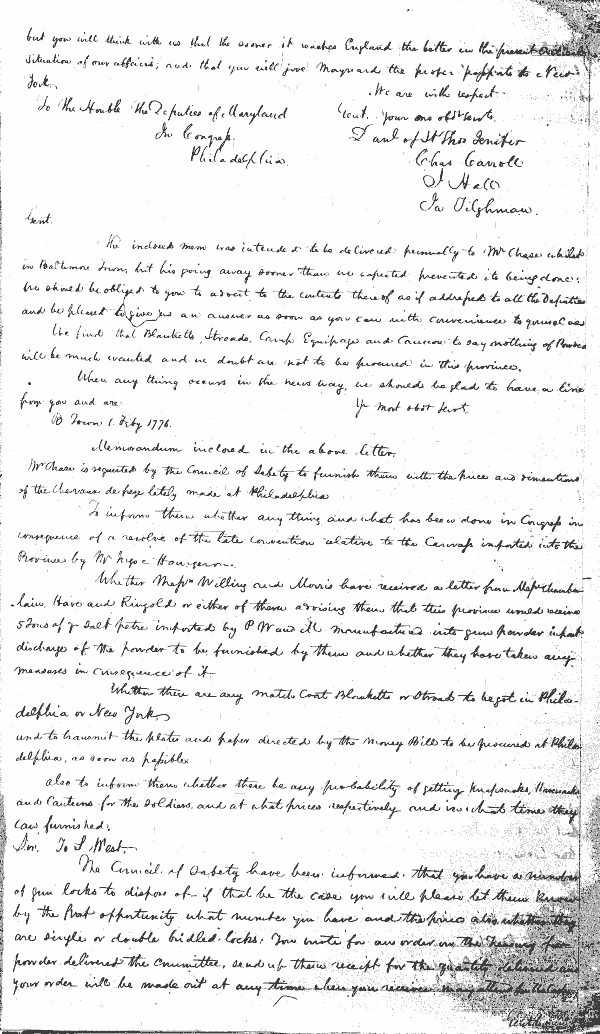 but you will think with us that the sooner it reaches England the better in the present
situation of our affairs; and that you will give Maynard the proper passports to New
York.
We are with respect
To the Honble the Deputies of Maryland
Gent. your mo obdt servts.
In Congress
Danl of St Thos Jenifer
Philadelphia.
Chas Carroll
J Hall
Ja Tilghman.
Gent.
The inclosed mem was intended to be delivered personally to Mr Chase whilst
in Baltimore Town, but his going away sooner than we expected prevented its being done:
We should be obliged to you to advert to the contents thereof as if addressed to all the Deputies
and be pleased to give us an answer as soon as you can with convenience to yourselves
We find that Blanketts, Strouds, Camp Equipage and Cannon to say nothing of Powder
will be much wanted and we doubt are not to be procured in this province.
When any thing occurs in the news way, we should be glad to have a line
from you and are
Yr most obdt Servt.
B Town 1. Feby 1776.
Memorandum inclosed in the above letter.
Mr Chase is requested by the Council of Safety to furnish them with the price and dimentions
of the Chevaux de frize lately made at Philadelphia
To inform them whether any thing and what has been done in Congress in
consequence of a resolve of the late convention relative to the Canvass imported into the
Province by Mr
Whether Messrs Willing and Morris have received a letter from Messrs Chamber
laine, Hare and Ringold or either of them advising them that this province would receive
5 Tons of ye Salt petre imported by P W and M manufactured into gun powder in part
discharge of the powder to be furnished by them and whether they have taken any
measures in consequence of it
Whether there are any match Coat Blanketts or Strouds to be got in Phila-
delphia or New York,
and to transmit the plates and paper directed by the Money Bill to be procured at Phila
delphia, as soon as possible
also to inform them whether there be any probability of getting knapsacks, Haversacks
and Canteens for the soldiers, and at what prices respectively and in what time they
can furnished;
To S West
The Council of Safety have been informed that you have a number
of gun locks to dispose of - if that be the case you will please let them know
by the first opportunity what number you have and the price also whether they
are single or double bridled locks. You write for an order on the treasury for
powder delivered the committee, send up their receipt for the quantity delivered and
your order will be made out at any time when you receive